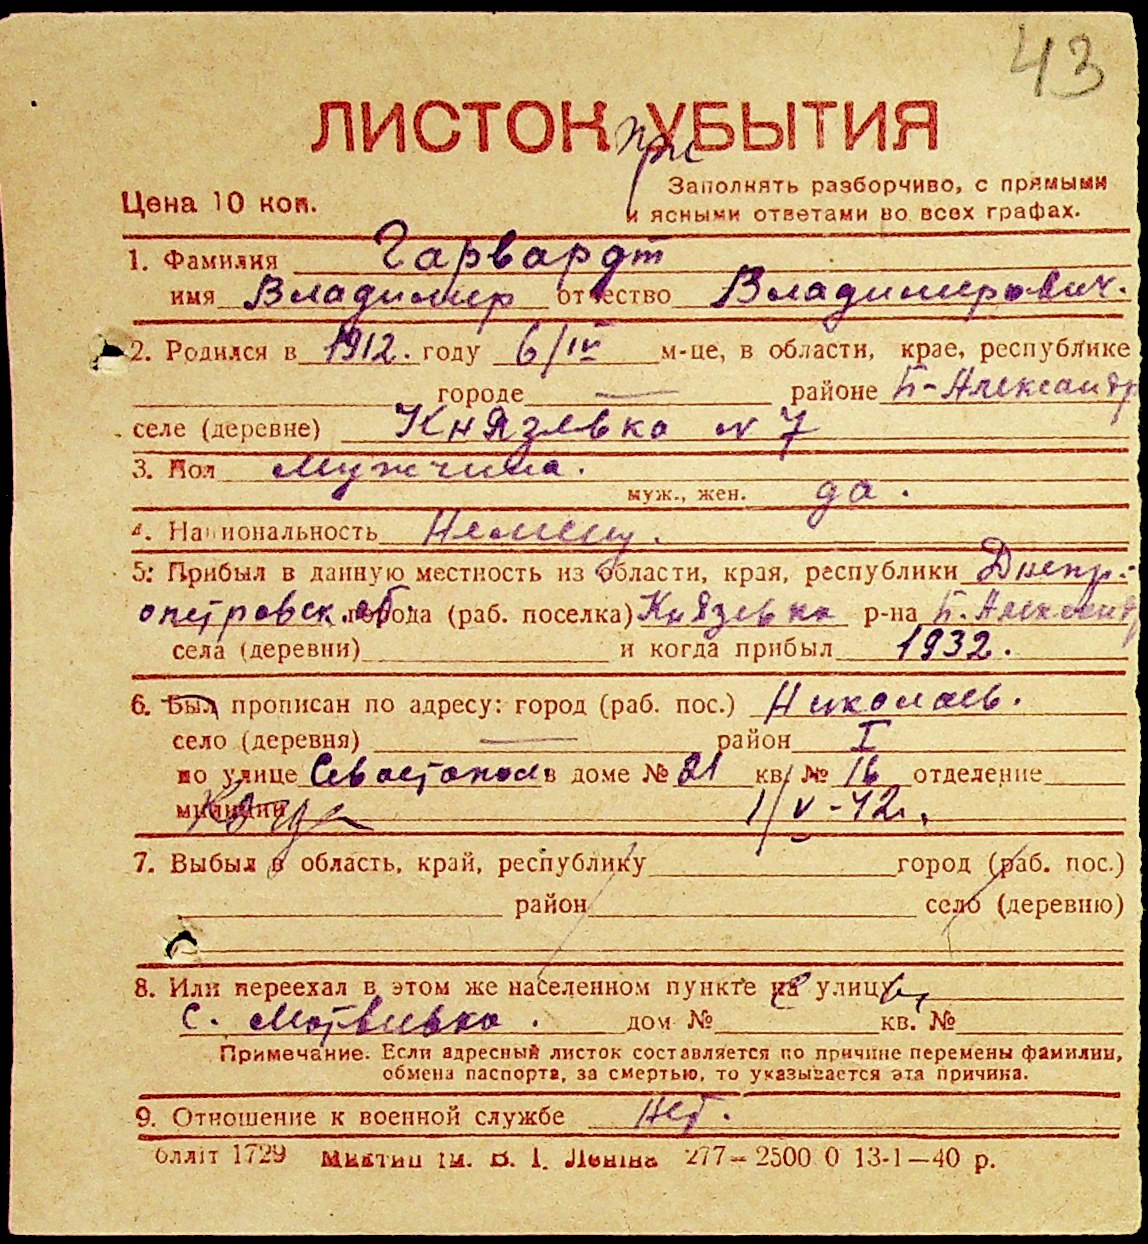 43
ЛИСТОК при УБЫТИЯ
Цена 10 коп.
Заполнять разборчиво, с прямыми
и ясными ответами во всех графах.
1. Фамилия Гарвардт
имя Владимир отчество Владимирович.
2. Родился в 1912. году 6/IV м-це, в области, крае, республике
городе — районе Б-Александр
селе (деревне) Князевка N 7
3. Пол мужчина.
муж., жен. да.
4. Национальность Немец.
5. Прибыл в данную местность из области, края, республики Днепр-
опетровск. об. города (раб. поселка) Князевка р-на Б. Александ
села (деревни) и когда прибыл 1932.
6. Был прописан по адресу: город (раб. пос.) Николаев.
село (деревня) — район I
по улице Севастопол в доме № 21 кв. № 16 отделение
милиции Когда 1/V-42г.
7. Выбыл в область, край, республику город (раб. пос.)
район село (деревню)
8. Или переехал в этом же населенном пункте на улицу
с. Матвеевка. дом № кв. №
Примечание. Если адресный листок составляется по причине перемены фамилии,
обмена паспорта, за смертью, то указывается эта причина.
9. Отношение к военной службе Нет.
блліт 1729 ім. В. І. Леніна 277—2500 0 13-1—40 р.